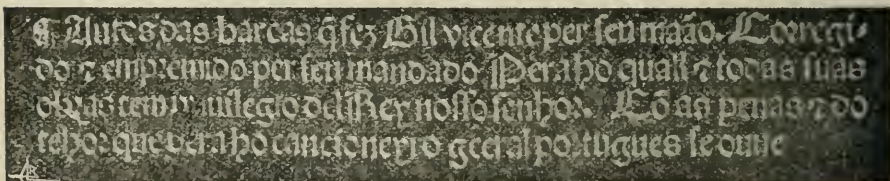 ¶ Autos das barcas q̃ fez Gil vicente per seu mãao. Corregi-
do ⁊ empremido per seu mandado Pera ho quall ⁊ todas suas
obras tem privilegio del Rey nosso senhor. Cõ as penas ⁊ do
teho: que pera ho cancioneyro geeral portugues se ouue